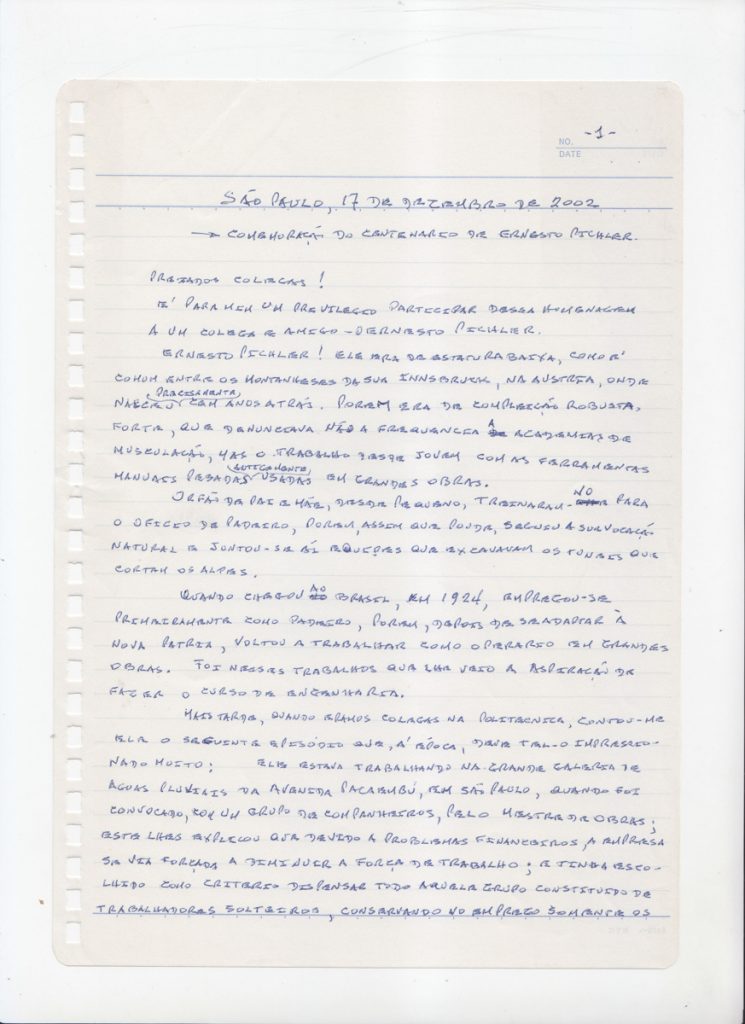 NO. -1-
DATE
SÃO PAULO, 17 DE DEZEMBRO DE 2002
→ COMEMORAÇÃO DO CENTENARIO DE ERNESTO PICHLER.
PREZADOS COLEGAS!
E' PARA MIM UM PRIVILEGIO PARTICIPAR DESSA HOMENAGEM
A UM COLEGA E AMIGO - O ERNESTO PICHLER.
ERNESTO PICHLER! ELE ERA DE ESTATURA BAIXA, COMO E'
COMUM ENTRE OS MONTANHESES DA SUA INNSBRUCK, NA AUSTRIA, ONDE
NASCEU PRECISAMENTE CEM ANOS ATRÁS. POREM ERA DE COMPLEIÇÃO ROBUSTA,
FORTE, QUE DENUNCIAVA NÃO A FREQUENCIA A ACADEMIAS DE
MUSCULAÇÃO, MAS O TRABALHO DESDE JOVEM COM AS FERRAMENTAS
MANUAIS PESADAS ANTIGAMENTE USADAS EM GRANDES OBRAS.
ORFÃO DE PAI E MÃE, DESDE PEQUENO, TREINARAM-NO PARA
O OFICIO DE PADEIRO, POREM, ASSIM QUE POUDE, SEGUIU A SUA VOCAÇÃO
NATURAL E JUNTOU-SE ÁS EQUIPES QUE EXCAVAVAM OS TUNEIS QUE
CORTAM OS ALPES.
QUANDO CHEGOU AO BRASIL, EM 1924, EMPREGOU-SE
PRIMEIRAMENTE COMO PADEIRO, POREM, DEPOIS DE SE ADAPTAR À
NOVA PATRIA, VOLTOU A TRABALHAR COMO OPERARIO EM GRANDES
OBRAS. FOI NESSES TRABALHOS QUE LHE VEIO A ASPIRAÇÃO DE
FAZER O CURSO DE ENGENHARIA.
MAIS TARDE, QUANDO ERAMOS COLEGAS NA POLITECNICA, CONTOU-ME
ELE O SEGUINTE EPISÓDIO QUE, A' EPOCA, DEVE TEL-O IMPRESSIO-
NADO MUITO: ELE ESTAVA TRABALHANDO NA GRANDE GALERIA DE
AGUAS PLUVIAIS DA AVENIDA PACAEMBÚ, EM SÃO PAULO, QUANDO FOI
CONVOCADO, COM UM GRUPO DE COMPANHEIROS, PELO MESTRE DE OBRAS;
ESTE LHES EXPLICOU QUE DEVIDO A PROBLEMAS FINANCEIROS, A EMPRESA
SE VIA FORÇADA A DIMINUIR A FORÇA DE TRABALHO; E TINHA ESCO-
LHIDO COMO CRITERIO DISPENSAR TODO AQUELE GRUPO CONSTITUIDO DE
TRABALHADORES SOLTEIROS, CONSERVANDO NO EMPREGO SOMENTE OS